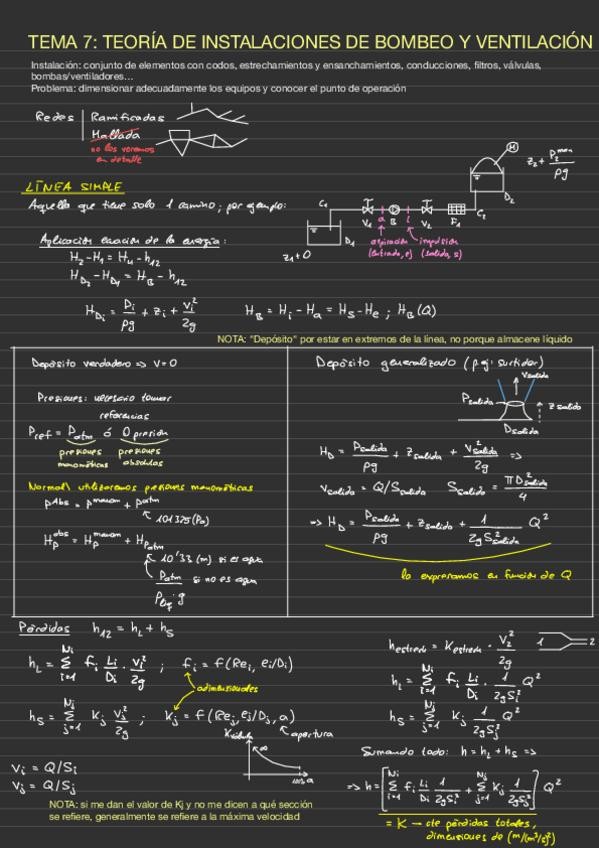 TEMA 7: TEORÍA DE INSTALACIONES DE BOMBEO Y VENTILACIÓN
Instalación: conjunto de elementos con codos, estrechamientos y ensanchamientos, conducciones, filtros, válvulas,
bombas/ventiladores...
Problema: dimensionar adecuadamente los equipos y conocer el punto de operación
Redes | Ramificadas
Mallada
no los veremos
en detalle
LÍNEA SIMPLE
Aquella que tiene solo 1 camino; por ejemplo:
C1 V1 a B i V2 F1 C2
D1 D2 M
z1+0
z2 + P2^man/ρg
aspiración (entrada, e)
impulsión (salida, s)
Aplicación ecuación de la energía:
H2 - H1 = Hu - h12
HD2 - HD1 = HB - h12
HDi = Pi/ρg + zi + vi²/2g
HB = Hi - Ha = Hs - He ; HB(Q)
NOTA: "Depósito" por estar en extremos de la línea, no porque almacene líquido
Depósito verdadero => V=0
Presiones: necesario tomar
referencias
Pref = Patm ó 0 presión
presiones manométricas
presiones absolutas
Normal\ utilizaremos presiones manométricas
P^abs = P^manom + Patm
101325 (Pa)
Hp^abs = Hp^manom + HPatm
10'33 (m) si es agua
Patm/ρliq·g si no es agua
Depósito generalizado (p.ej: surtidor)
Vsalida
Psalida
z salida
Dsalida
HD = Psalida/ρg + zsalida + v²salida/2g =>
Vsalida = Q/Ssalida Ssalida = πD²salida/4
=> HD = Psalida/ρg + zsalida + 1/2gS²salida Q²
lo expresamos en función de Q
Pérdidas h12 = hL + hS
hL = Σ(i=1, Ni) fi Li/Di · vi²/2g ; fi = f(Rei, ei/Di)
adimensionales
hS = Σ(j=1, Nj) Kj vj²/2g ; Kj = f(Rej, ej/Dj, a)
apertura
Kválvula
∞
100% a
vi = Q/Si
vj = Q/Sj
NOTA: si me dan el valor de Kj y no me dicen a qué sección
se refiere, generalmente se refiere a la máxima velocidad
hestrech = Kestrech · V2²/2g
1 2
hL = Σ(i=1, Ni) fi Li/Di 1/2gSi² Q²
hS = Σ(j=1, Nj) Kj 1/2gSj² Q²
Sumando todo: h = hL + hS =>
=> h = [Σ(i=1, Ni) fi Li/Di 1/2gSi² + Σ(j=1, Nj) Kj 1/2gSj²] Q²
= K → cte pérdidas totales,
dimensiones de (m/(m³/s)²)